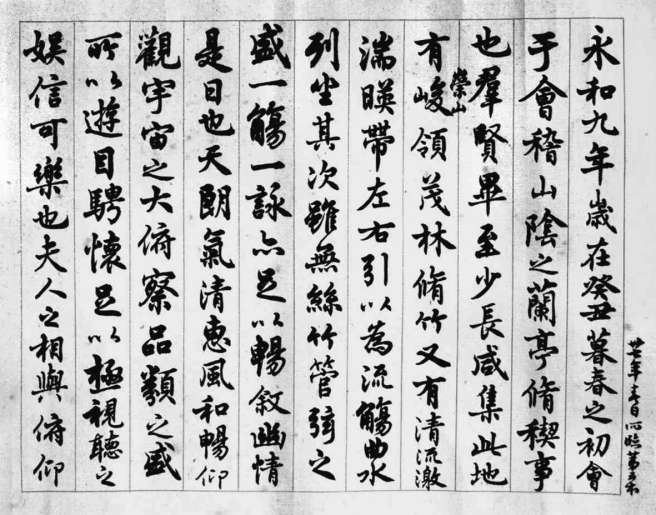 永和九年歲在癸丑暮春之初會
于會稽山陰之蘭亭脩稧事
也羣賢畢至少長咸集此地
崇山
有峻領茂林脩竹又有清流激
湍暎帶左右引以為流觴曲水
列坐其次雖無絲竹管弦之
盛一觴一詠亦足以暢敘幽情
是日也天朗氣清惠風和暢仰
觀宇宙之大俯察品類之盛
所以遊目騁懷足以極視聽之
娛信可樂也夫人之相與俯仰